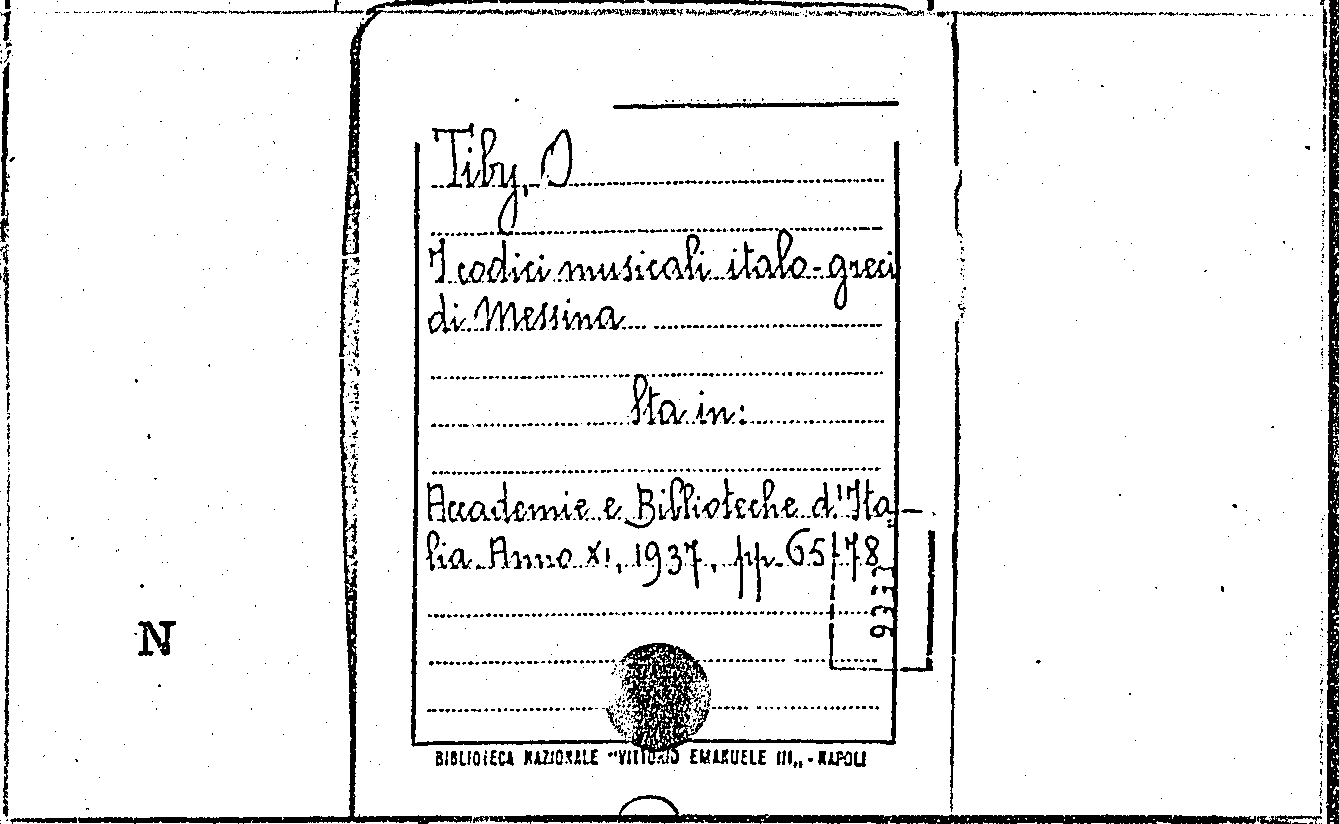 Tiby, O
I codici musicali italo-greci
di Messina
Sta in:
Accademie e Biblioteche d'Ita-
lia. Anno XI, 1937, pp. 65-78
9333
N
BIBLIOTECA NAZIONALE "VITTORIO EMANUELE III„ - NAPOLI